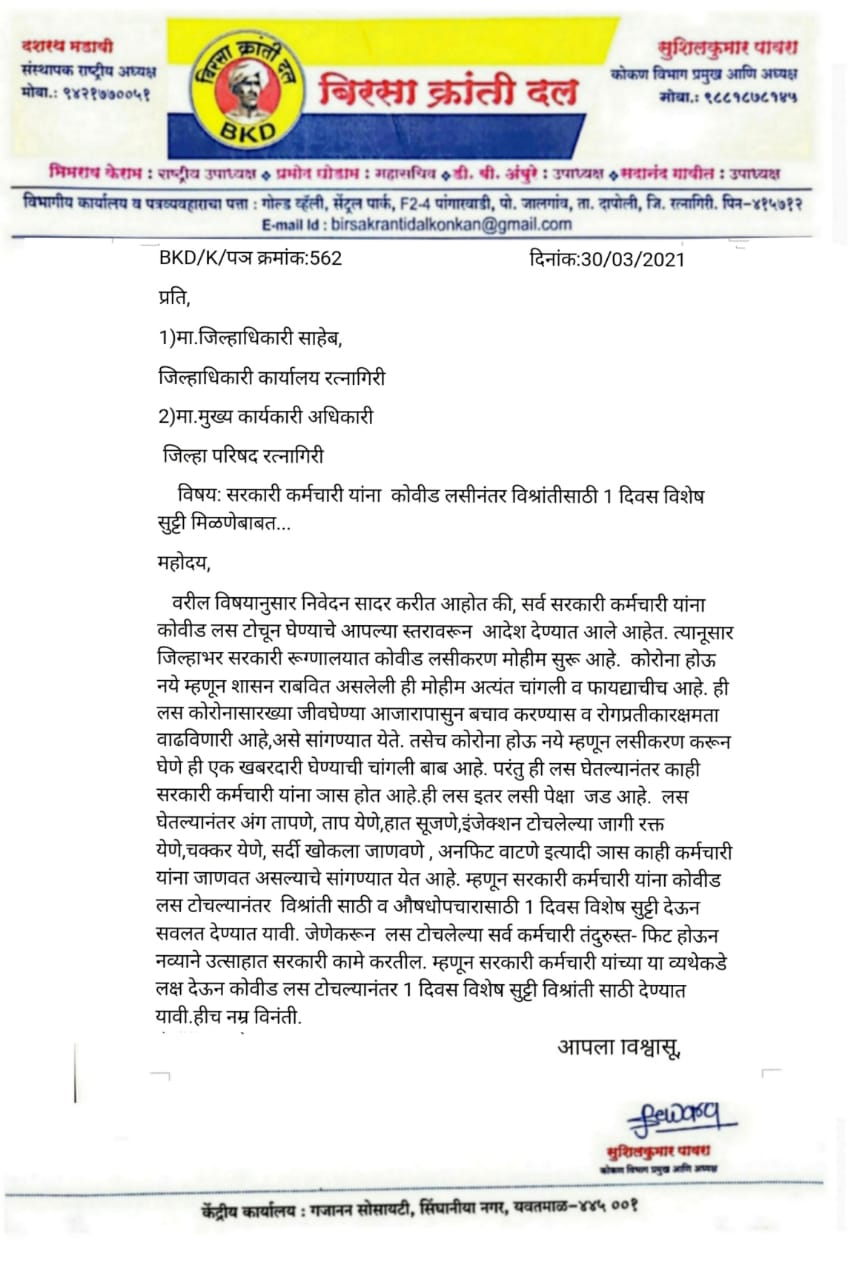 दशरथ मडावी
संस्थापक राष्ट्रीय अध्यक्ष
मोबा.: ९४२१७७००५१
बिरसा क्रांती दल
BKD
बिरसा क्रांती दल
सुशिलकुमार पावरा
कोकण विभाग प्रमुख आणि अध्यक्ष
मोबा.: ९८८१८७८१४५
भिमराय केराम : राष्ट्रीय उपाध्यक्ष ❖ प्रमोन घोडाम : महासचिव ❖ डी. बी. अंपुरे : उपाध्यक्ष ❖ सदानंद गावीत : उपाध्यक्ष
विभागीय कार्यालय व पत्रव्यवहाराचा पत्ता : गोल्ड व्हॅली, सेंट्रल पार्क, F2-4 पांगारवाडी, पो. जालगांव, ता. दापोली, जि. रत्नागिरी. पिन–४१५७१२
E-mail Id : birsakrantidalkonkan@gmail.com
BKD/K/पञ क्रमांक:562 दिनांक:30/03/2021
प्रति,
1)मा.जिल्हाधिकारी साहेब,
जिल्हाधिकारी कार्यालय रत्नागिरी
2)मा.मुख्य कार्यकारी अधिकारी
जिल्हा परिषद रत्नागिरी
विषय: सरकारी कर्मचारी यांना कोवीड लसीनंतर विश्रांतीसाठी 1 दिवस विशेष
सुट्टी मिळणेबाबत...
महोदय,
वरील विषयानुसार निवेदन सादर करीत आहोत की, सर्व सरकारी कर्मचारी यांना
कोवीड लस टोचून घेण्याचे आपल्या स्तरावरून आदेश देण्यात आले आहेत. त्यानूसार
जिल्हाभर सरकारी रूग्णालयात कोवीड लसीकरण मोहीम सुरू आहे. कोरोना होऊ
नये म्हणून शासन राबवित असलेली ही मोहीम अत्यंत चांगली व फायद्याचीच आहे. ही
लस कोरोनासारख्या जीवघेण्या आजारापासुन बचाव करण्यास व रोगप्रतीकारक्षमता
वाढविणारी आहे,असे सांगण्यात येते. तसेच कोरोना होऊ नये म्हणून लसीकरण करून
घेणे ही एक खबरदारी घेण्याची चांगली बाब आहे. परंतु ही लस घेतल्यानंतर काही
सरकारी कर्मचारी यांना ञास होत आहे.ही लस इतर लसी पेक्षा जड आहे. लस
घेतल्यानंतर अंग तापणे, ताप येणे,हात सूजणे,इंजेक्शन टोचलेल्या जागी रक्त
येणे,चक्कर येणे, सर्दी खोकला जाणवणे , अनफिट वाटणे इत्यादी ञास काही कर्मचारी
यांना जाणवत असल्याचे सांगण्यात येत आहे. म्हणून सरकारी कर्मचारी यांना कोवीड
लस टोचल्यानंतर विश्रांती साठी व औषधोपचारासाठी 1 दिवस विशेष सुट्टी देऊन
सवलत देण्यात यावी. जेणेकरून लस टोचलेल्या सर्व कर्मचारी तंदुरुस्त- फिट होऊन
नव्याने उत्साहात सरकारी कामे करतील. म्हणून सरकारी कर्मचारी यांच्या या व्यथेकडे
लक्ष देऊन कोवीड लस टोचल्यानंतर 1 दिवस विशेष सुट्टी विश्रांती साठी देण्यात
यावी.हीच नम्र विनंती.
आपला विश्वासू,
सुशिलकुमार पावरा
कोकण विभाग प्रमुख आणि अध्यक्ष
केंद्रीय कार्यालय : गजानन सोसायटी, सिंघानीया नगर, यवतमाळ–४४५ ००१